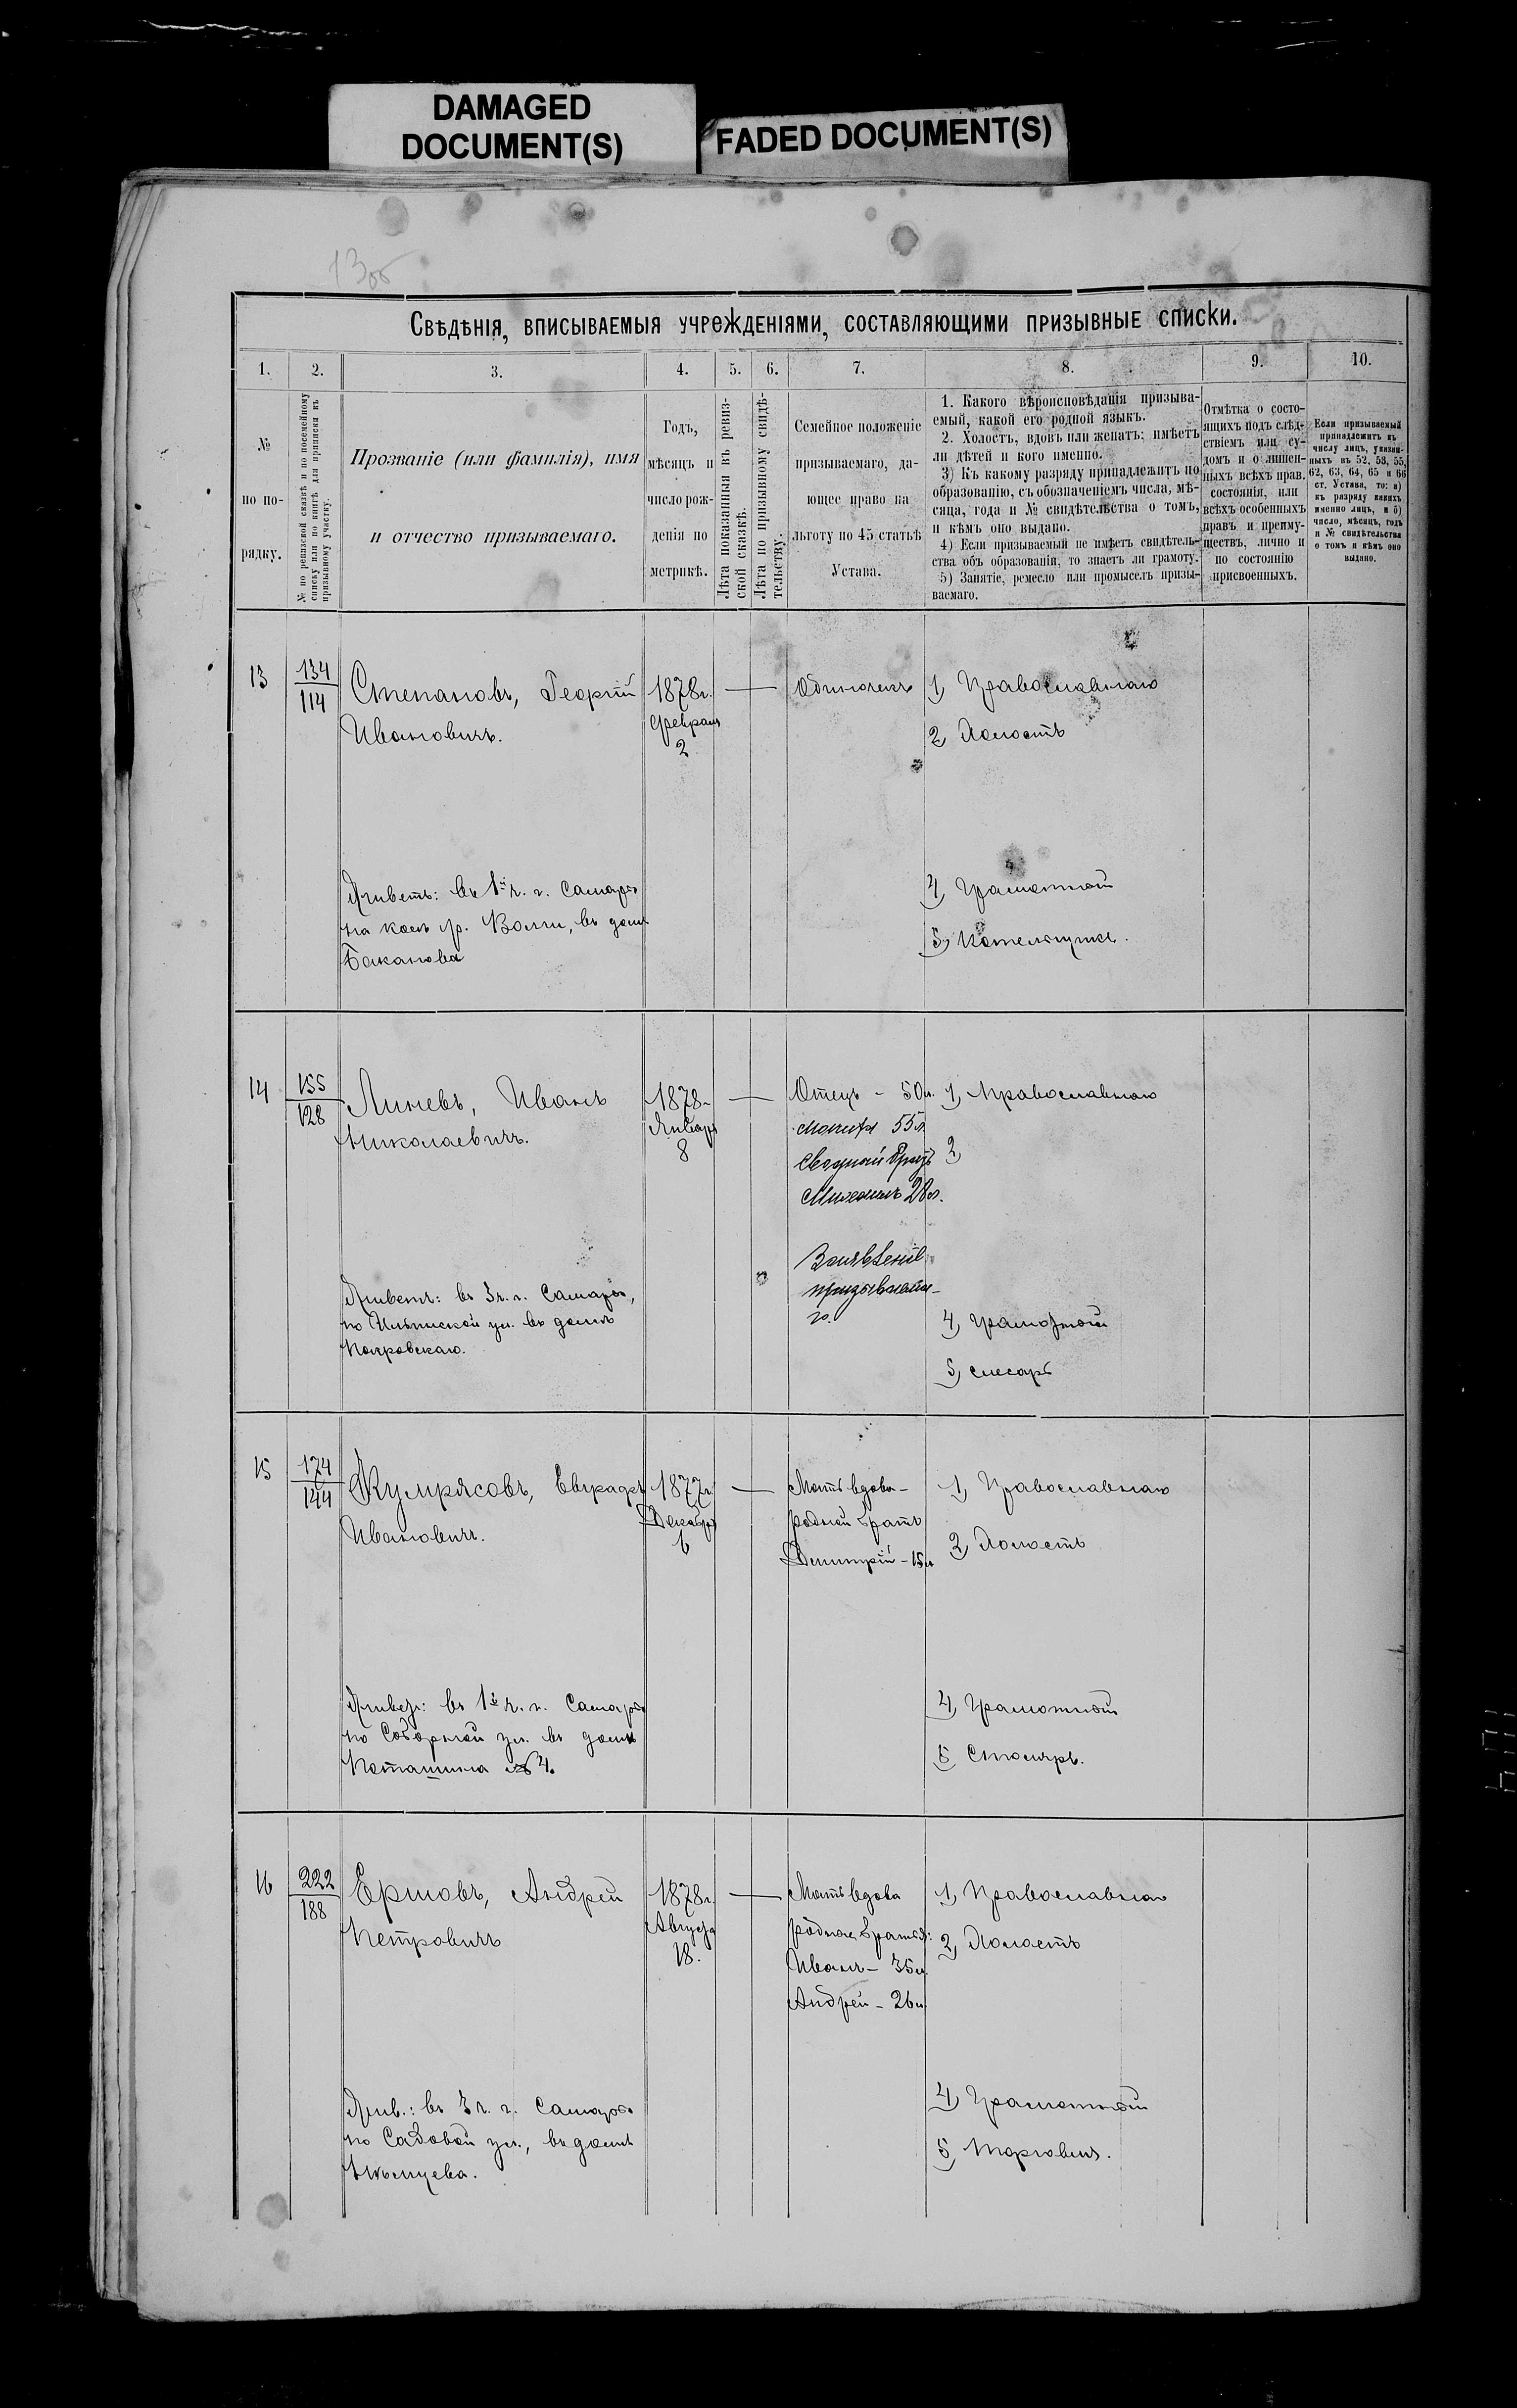 DAMAGED
DOCUMENT(S)
FADED DOCUMENT(S)
13об
Свѣдѣнія, вписываемыя учрежденіями, составляющими призывные списки.
1. 2. 3. 4. 5. 6. 7. 8. 9. 10.
№
по по-
рядку.
№ по ревизской сказкѣ и по посемейному
списку или по книгѣ для приписки къ
призывному участку.
Прозваніе (или фамилія), имя
и отчество призываемаго.
Годъ,
мѣсяцъ и
число рож-
денія по
метрикѣ.
Лѣта показанныя въ ревиз-
ской сказкѣ.
Лѣта по призывному свидѣ-
тельству.
Семейное положеніе
призываемаго, да-
ющее право на
льготу по 45 статьѣ
Устава.
1. Какого вѣроисповѣданія призыва-
емый, какой его родной языкъ.
2. Холостъ, вдовъ или женатъ; имѣетъ
ли дѣтей и кого именно.
3) Къ какому разряду принадлежитъ по
образованію, съ обозначеніемъ числа, мѣ-
сяца, года и № свидѣтельства о томъ,
и кѣмъ оно выдано.
4) Если призываемый не имѣетъ свидѣтель-
ства объ образованіи, то знаетъ ли грамоту.
5) Занятіе, ремесло или промыселъ призы-
ваемаго.
Отмѣтка о состо-
ящихъ подъ слѣд-
ствіемъ или су-
домъ и о лишен-
ныхъ всѣхъ прав.
состоянія, или
всѣхъ особенныхъ
правъ и преиму-
ществъ, лично и
по состоянію
присвоенныхъ.
Если призываемый
принадлежитъ къ
числу лицъ, указан-
ныхъ въ 52, 53, 55,
62, 63, 64, 65 и 66
ст. Устава, то: а)
къ разряду какихъ
именно лицъ, и б)
число, мѣсяцъ, годъ
и № свидѣтельства
о томъ и кѣмъ оно
выдано.
13
134
114
Степановъ, Георгій
Ивановичъ.
1878г.
Февраля
2
Одиночекъ
1, Православнаго
2, Холостъ
Живетъ: въ 1й ч. г. Самары
р. Волги, въ домѣ
Баканова
4, Грамотный
5, Котельщикъ.
14
155
128
Линевъ, Иванъ
Николаевичъ.
1878г
Января
8
Отецъ - 50л.
мачиха 55л
Сводный братъ
Михаилъ 28л.
Заявленіе
призываема-
го.
1, Православнаго
2,
Живетъ: въ 3ч. г. Самары,
по Ильинской ул. въ домѣ
Покровскаго.
4, грамотный
5, слесарь
15
174
144
Кумрясовъ, Евграфъ
Ивановичъ.
1877г
Декабря
6
Мать вдова -
родной братъ
Димитрій - 15л
1, Православнаго
2, Холостъ
Живетъ: въ 1й ч. г. Самары
по Соборной ул. въ домѣ
№ 4.
4, Грамотный
5 Столяръ.
16
222
188
Ершовъ, Андрей
Петровичъ
1878г.
Августа
18.
Мать вдова
родные братья:
Иванъ - 35л
Андрей - 26л
1, Православнаго
2, Холостъ
Жив.: въ 3 ч. г. Самары
по Садовой ул., въ домѣ
4, Грамотный
5, Торговля.